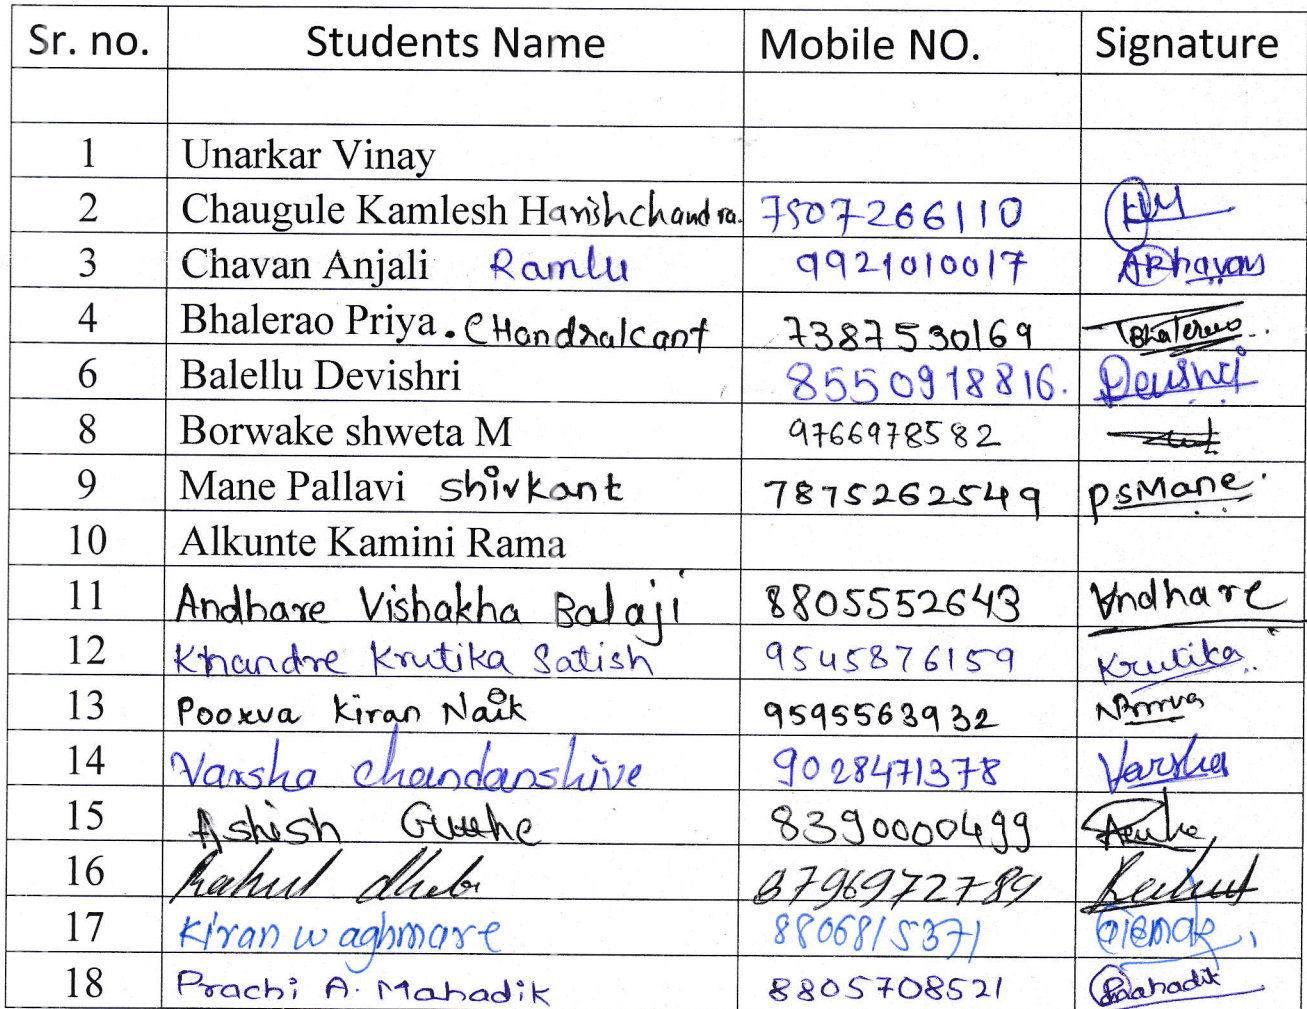 Sr. no. Students Name Mobile NO. Signature
1 Unarkar Vinay
2 Chaugule Kamlesh Harishchandra. 7507266110
3 Chavan Anjali Ramlu 9921010017 AChavan
4 Bhalerao Priya. CHandralcant 7387530169 Bhalerao
6 Balellu Devishri 8550918816. Devshri
8 Borwake shweta M 9766978582
9 Mane Pallavi shivkant 7875262549 PSMane
10 Alkunte Kamini Rama
11 Andhare Vishakha Balaji 8805552643 Vndhare
12 Khandre Krutika Satish 9545876159 Krutika
13 Poorva Kiran Naik 9595563932
14 Varsha chandanshive 9028471378 Varsha
15 Ashish 8390000499
16 Rahul 8796972789 Rahul
17 Kiran waghmare 8806815371
18 Prachi A. Mahadik 8805708521 Pmahadik